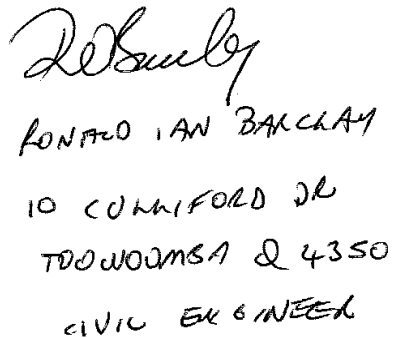 RIBarclay
RONALD IAN BARCLAY
10 CULLIFORD DR
TOOWOOMBA Q 4350
CIVIL ENGINEER